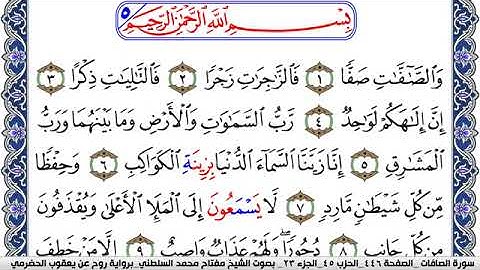 بِسْمِ ٱللَّهِ ٱلرَّحْمَٰنِ ٱلرَّحِيمِ ٥
وَٱلصَّٰٓفَّٰتِ صَفًّا ١ فَٱلزَّٰجِرَٰتِ زَجْرًا ٢ فَٱلتَّٰلِيَٰتِ ذِكْرًا ٣
إِنَّ إِلَٰهَكُمْ لَوَٰحِدٌ ٤ رَّبُّ ٱلسَّمَٰوَٰتِ وَٱلْأَرْضِ وَمَا بَيْنَهُمَا وَرَبُّ
ٱلْمَشَٰرِقِ ٥ إِنَّا زَيَّنَّا ٱلسَّمَآءَ ٱلدُّنْيَا بِزِينَةِ ٱلْكَوَاكِبِ ٦ وَحِفْظًا
مِّن كُلِّ شَيْطَٰنٍ مَّارِدٍ ٧ لَّا يَسْمَعُونَ إِلَى ٱلْمَلَإِ ٱلْأَعْلَىٰ وَيُقْذَفُونَ
مِن كُلِّ جَانِبٍ ٨ دُحُورًا ۖ وَلَهُمْ عَذَابٌ وَاصِبٌ ٩ إِلَّا مَنْ خَطِفَ
سورة الصافات_الصفحة ٤٤٦_الحزب ٤٥_الجزء ٢٣_ بصوت الشيخ مفتاح محمد السلطني_برواية روح عن يعقوب الحضرمي